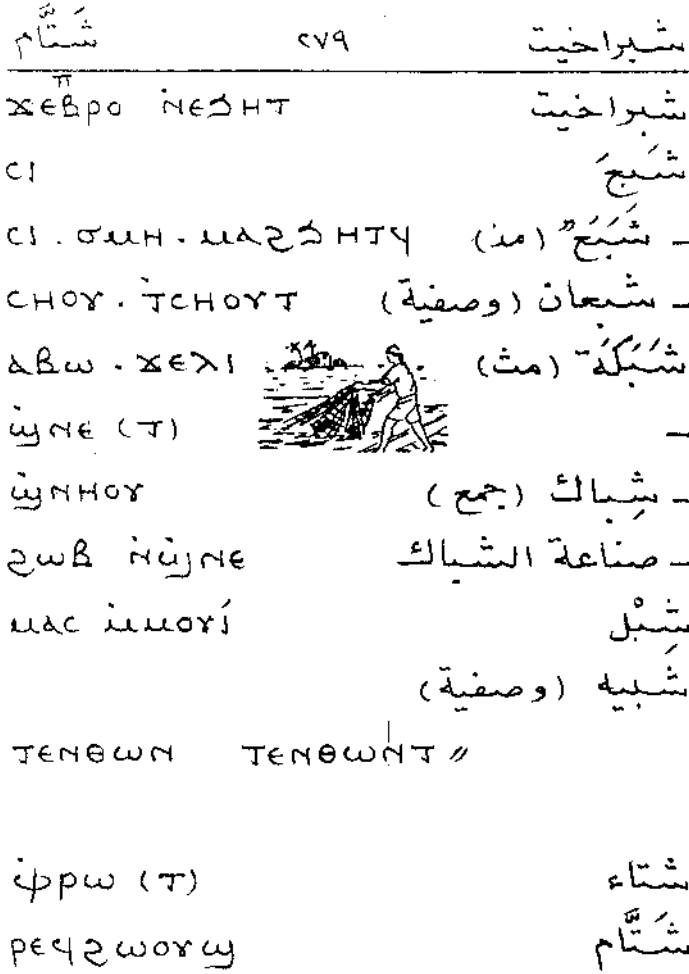 شَتَّام ٢٧٩ شبراخيت
ϫⲉⲃⲣⲟ ⲛ̀ⲉϧⲏⲧ شبراخيت
ⲡ
ⲥⲓ شَبِعَ
ⲥⲓ . ϭⲙⲏ . ⲙⲁϩϧⲏⲧϥ ـ شَبَعٌ (مذ)
ⲥⲏⲟⲩ . ⲧ̀ⲥⲏⲟⲩⲧ ـ شبعان (وصفية)
ⲁⲃⲱ . ϫⲉⲗⲓ شَبَكَة (مث)
ϣ̀ⲛⲉ (ⲧ) ـ
ϣ̀ⲛⲏⲟⲩ ـ شِباك (جمع)
ϩⲱⲃ ⲛ̀ϣ̀ⲛⲉ ـ صناعة الشباك
ⲙⲁⲥ ⲙ̀ⲙⲟⲩⲓ́ شِبْل
شَبيه (وصفية)
ⲧⲉⲛⲑⲱⲛ ⲧⲉⲛⲑⲱⲛⲧ〃
ⲫ̀ⲣⲱ (ⲧ) شتاء
ⲣⲉϥϩⲱⲟⲩϣ شَتَّام